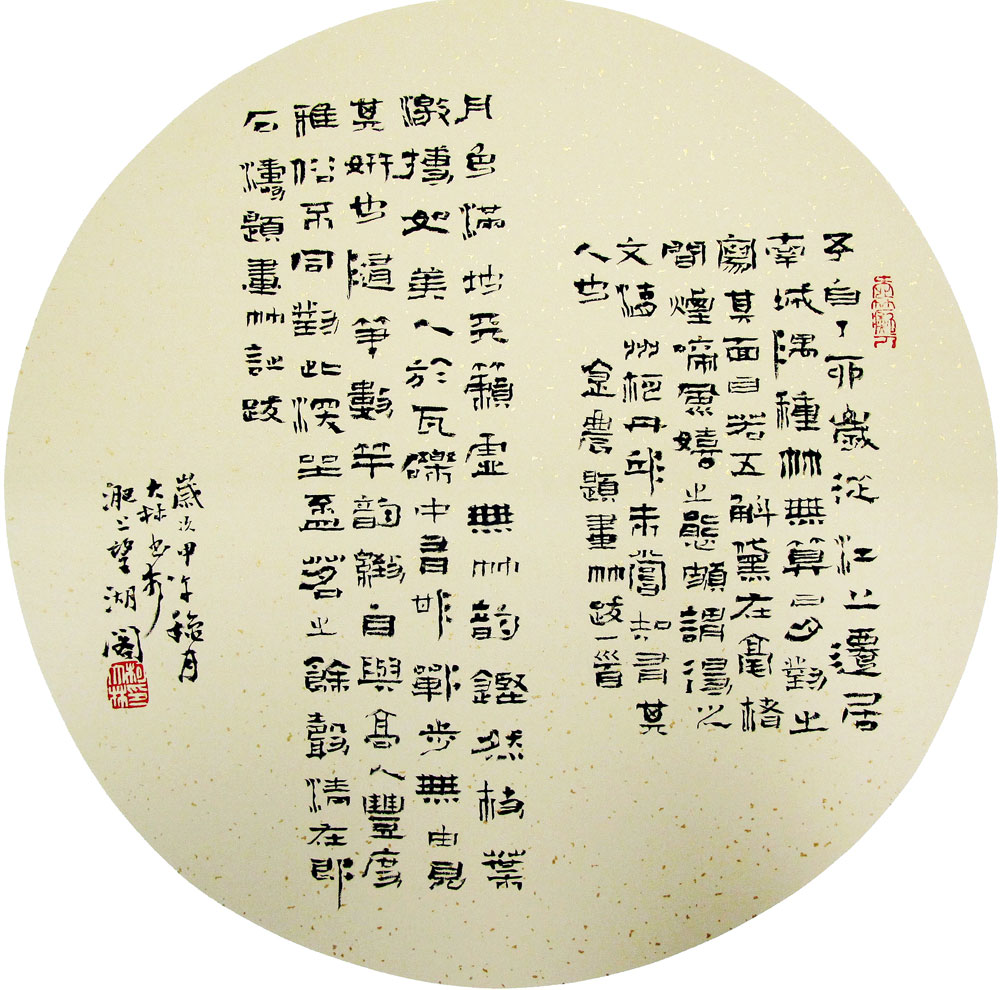 予自丁卯歲從江上遷居
南城隅種竹無算日夕對之
寫其面目若五斛黛在毫楮
間煙啼風嬉之態頗謂得之
文湖州柯丹邱未嘗知有其
人也 金農題畫竹跋一首
月色滿地天籟虛無竹韵鏗然枝葉
激摶如美人於瓦礫中習邯鄲步無由見
其妍也隨筆數竿韵緻自與高人豐度
雅俗不同對此深坐盃茗之餘聲清在即
石濤題畫竹詩跋
歲次甲午穐月
大林書於
淝上望湖閣